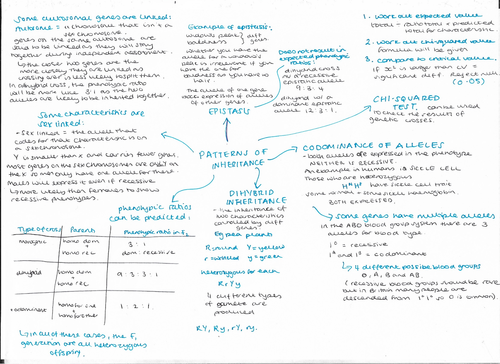 Some autosomal genes are linked:
Autosome: a chromosome that isn't a
sex chromosome.
genes on the same autosome are
said to be linked as they will stay
together during independent assortment.
↳ the closer two genes are the
more closely they are linked as
crossing over is less likely to split them.
in dihybrid cross, the phenotypic ratio
will be more like 3:1 as the two
alleles are likely to be inherited together
Example of epistasis:
widow's peak } diff
baldness } genes
whether you have the
allele for a widow's
peak is irrelevant if you
have the
baldness as you have no
hair.
The allele of one gene
expression of alleles
of other genes.
EPISTASIS
Does not result in
expected phenotypic
ratios:
dihybrid cross
w/ a recessive
epistatic allele
9:3:4
dihybrid w/ a
dominant epistatic
allele 12:3:1.
1. Work out expected value.
total ÷ ratio total × predicted
total for characteristic.
2. Work out chi squared value
formula will be given
3. Compare to critical value.
if x² is larger than CV =
significant diff. Reject null.
(0.05)
CHI-SQUARED
TEST. can be used
to check the results of
genetic crosses.
Some characteristics are
sex linked:
- Sex linked = the allele that
codes for that characteristic is on
a sex chromosome.
Y is smaller than X and carries fewer genes.
most genes on the sex chromosomes are only on
the X so men only have one allele for these.
Males will express it even if recessive
↳ more likely than females to show
recessive phenotypes.
PATTERNS OF
INHERITANCE
CODOMINANCE OF ALLELES
- both alleles are expressed in the phenotype
NEITHER IS RECESSIVE.
An example in humans is SICKLE CELL
Those who are heterozygous
have sickle cell trait
some normal + some sickle haemoglobin.
BOTH EXPRESSED.
phenotypic ratios
can be predicted:
Type of cross Parents Phenotypic ratio in F₂
monohybrid homo dom × homo rec 3:1 dom:recessive
dihybrid homo dom × homo rec 9:3:3:1
codominant homo for one × homo for other 1:2:1
↳ in all of these cases, the F₁
generation are all heterozygous
offspring.
DIHYBRID
INHERITANCE
- the inheritance of
two characteristics
controlled by diff
genes
Eg pea plants
R = round Y = yellow
r = wrinkled y = green
heterozygous for each
RrYy
4 different types
of gamete are
produced
RY, Ry, rY, ry.
Some genes have multiple alleles
in the ABO blood group system there are 3
alleles for blood type
Iᴼ = recessive
Iᴬ and Iᴮ = codominant
↳ 4 different possible blood groups
O, A, B and AB
(recessive blood groups normally rare
but in Britain many people are
descended from IᴼIᴼ so O is common)